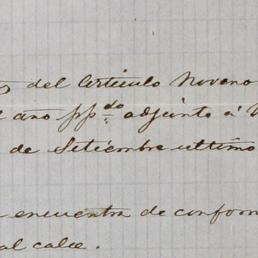 del Articulo Noveno
año ppdo adjunto á
de Setiembre ultimo
encuentra de confor
al calce.